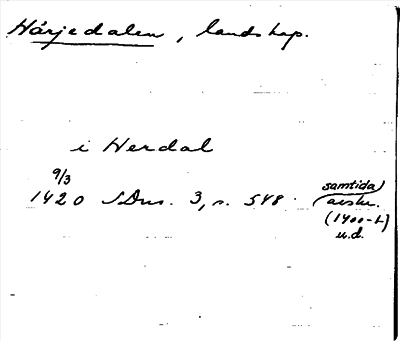 Härjedalen, landskap.
i Herdal
9/3
1420 SDns. 3, s. 548.
samtida
avskr.
(1400-t)
u.d.